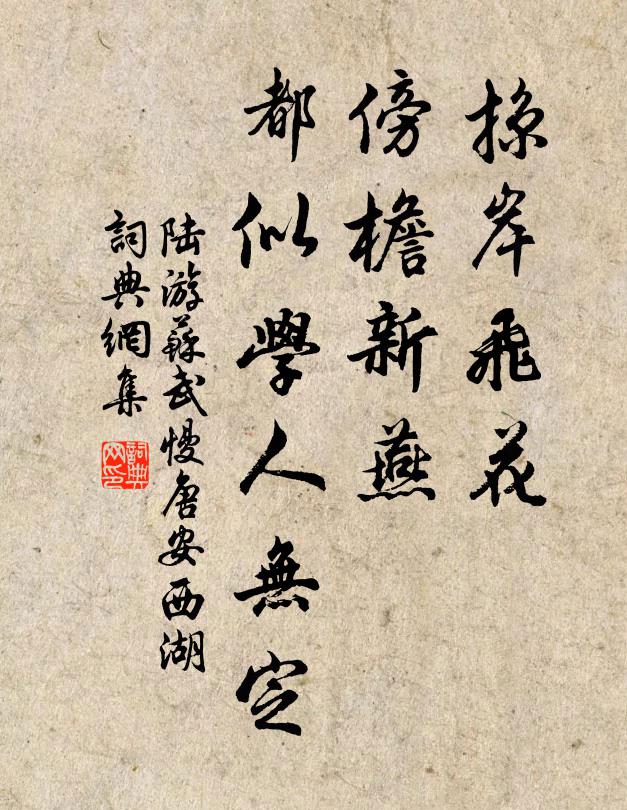 掠岸飛花
傍檐新燕
都似學人無定
陸游蘇武慢唐安西湖
詞典網集
詞典
网印